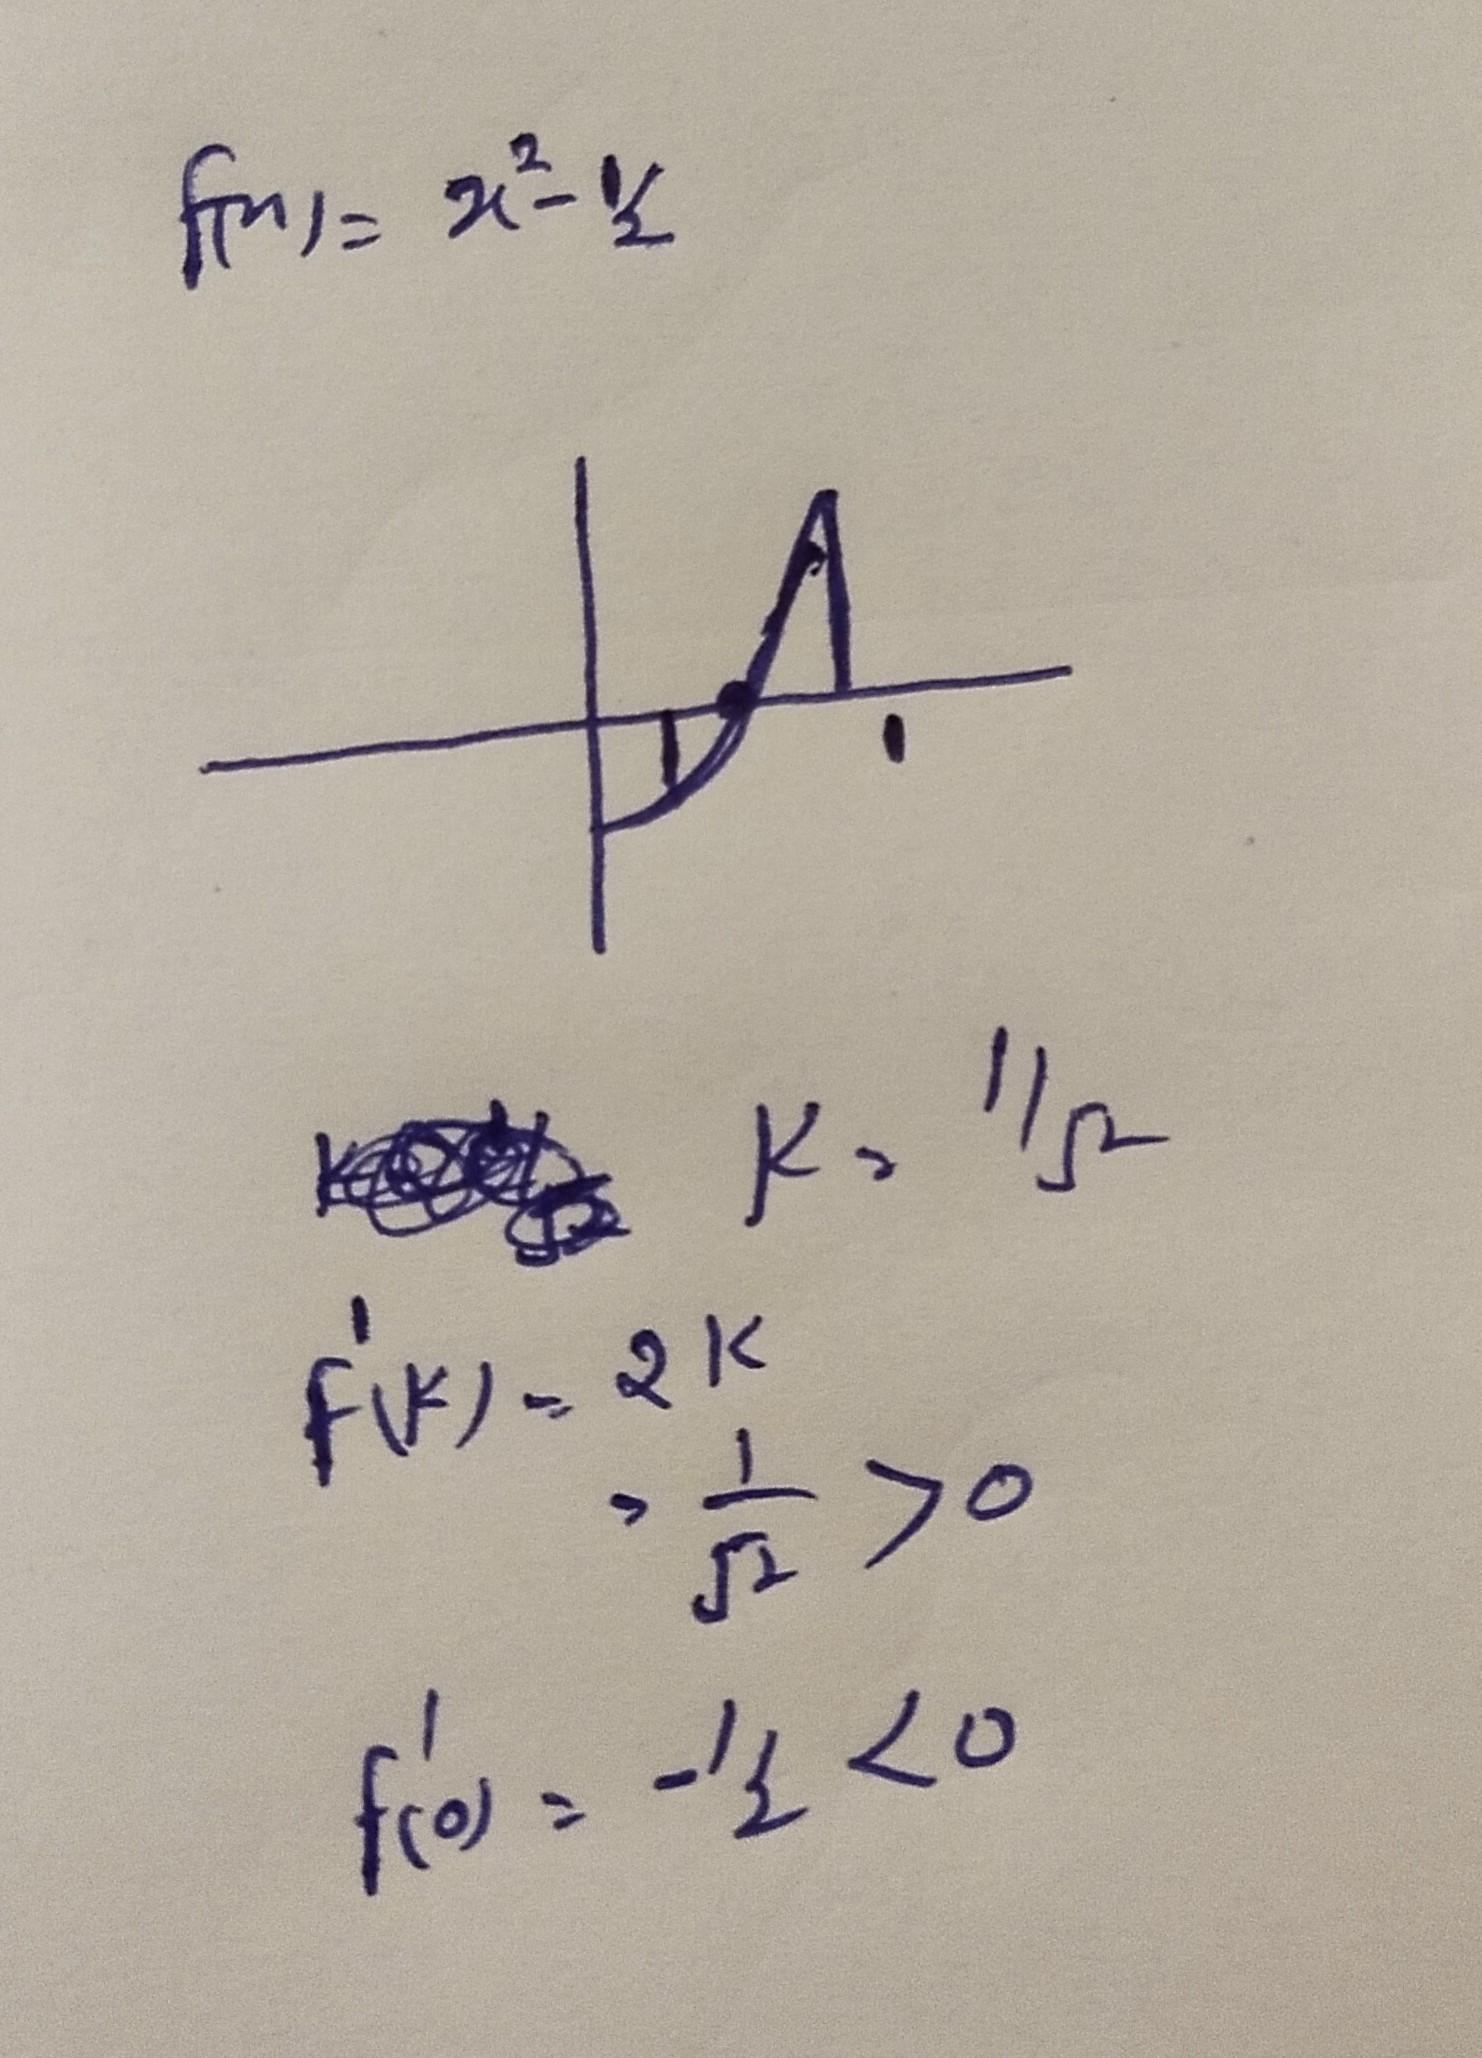 f(x) = x² - 1/2
1
K = 1/√2
f'(K) = 2K
= 1/√2 > 0
f'(0) = -1/2 < 0